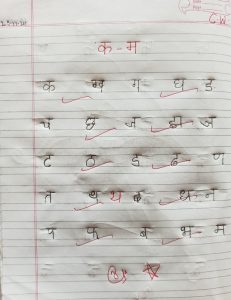 C.W
क - म
क ख ग घ ङ
च छ ज झ ञ
ट ठ ड ढ ण
त थ थ द ध न
प फ ब भ म